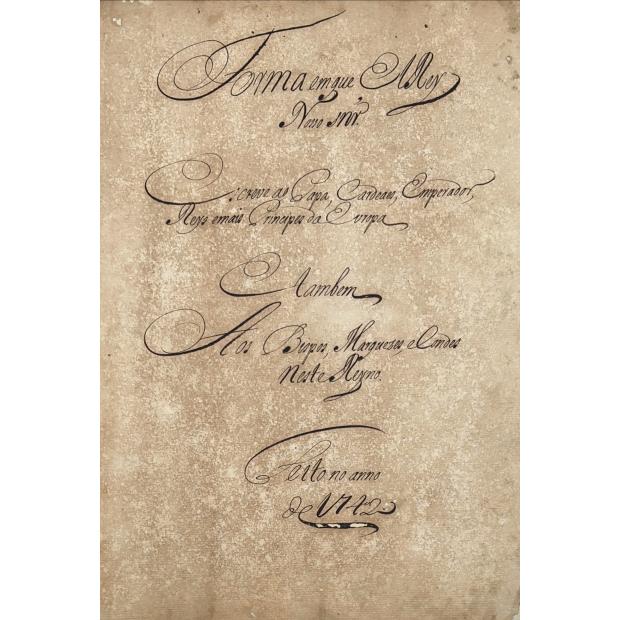 Forma em que ElRey
Noso Snr.
Escreve ao Papa, Cardeaes, Emperador,
Reys e mais Principes da Europa
E tambem
Aos Bispos, Marquezes, e Condes
Neste Reyno.
Feito no anno
de 1742